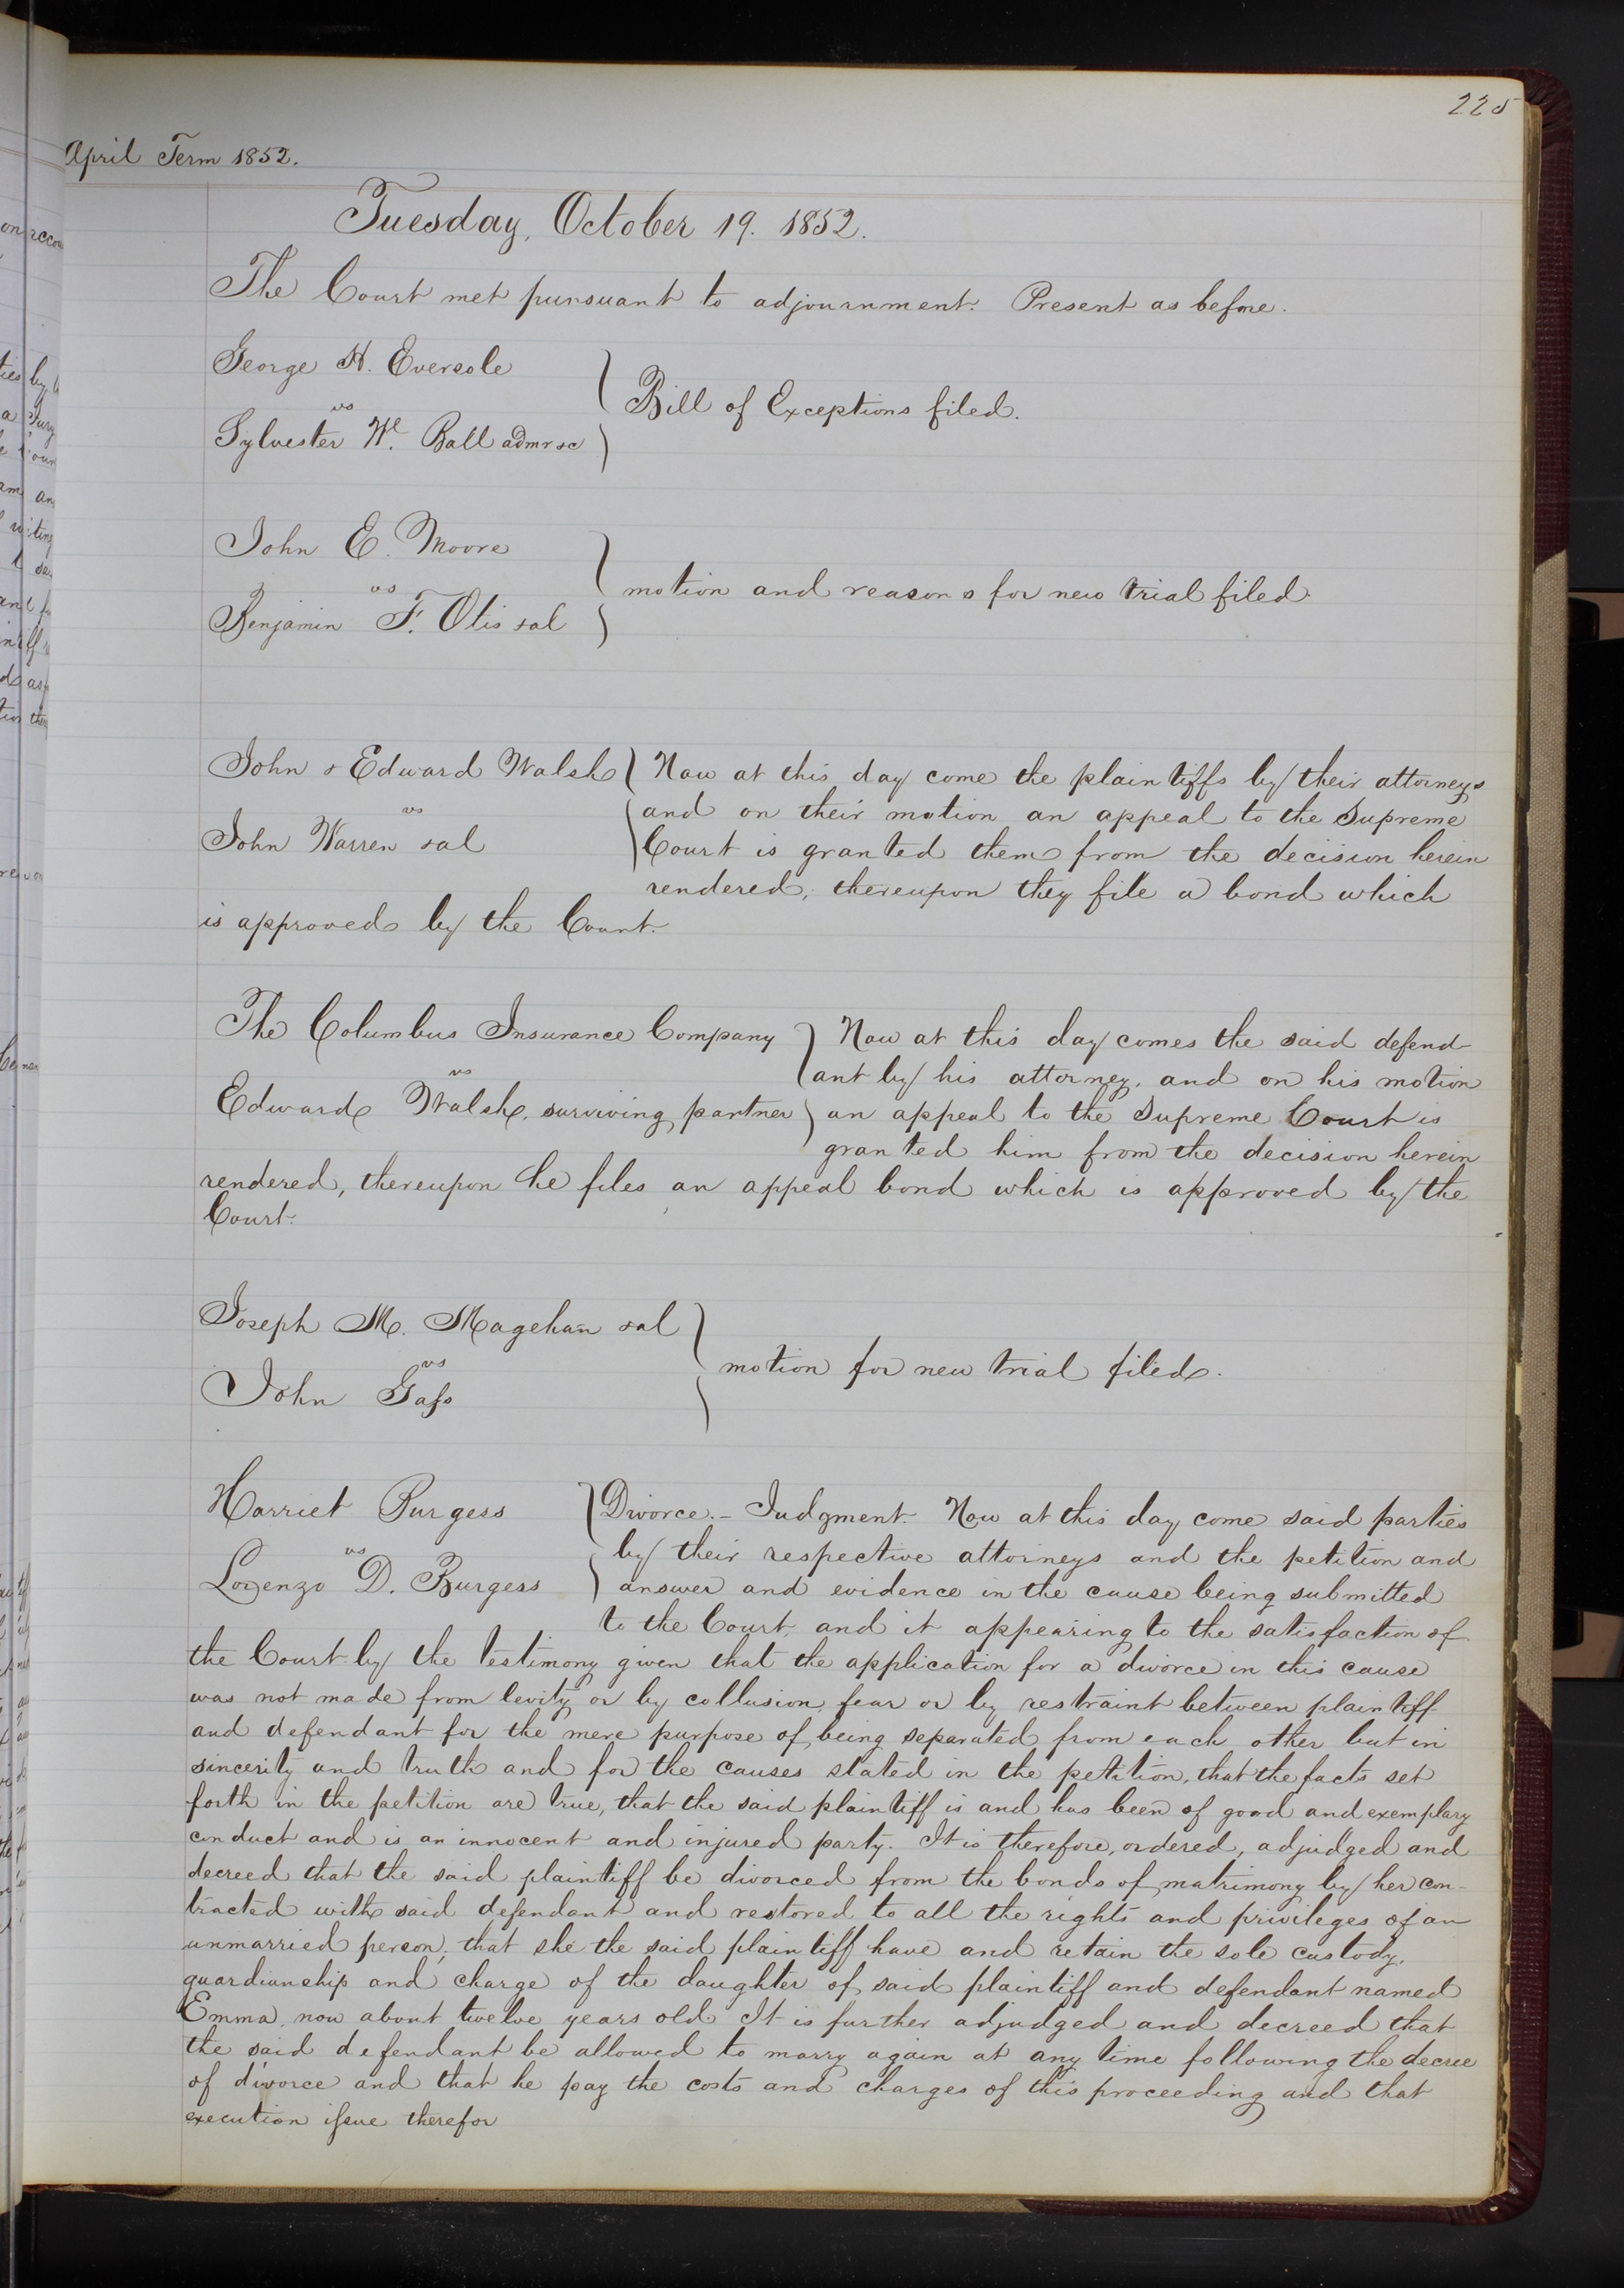 225
April Term 1852.
Tuesday, October 19. 1852.
The Court met pursuant to adjournment. Present as before.
George H. Eversole
vs
Sylvester Wl. Ball admr &c
Bill of Exceptions filed.
John E. Moore
vs
Benjamin F. Otis &al
motion and reasons for new trial filed.
John & Edward Walsh
vs
John Warren &al
Now at this day come the plaintiffs by their attorneys
and on their motion an appeal to the Supreme
Court is granted them from the decision herein
rendered, thereupon they file a bond which
is approved by the Court.
The Columbus Insurance Company
vs
Edward Walsh, surviving partner
Now at this day comes the said defend-
ant by his attorney, and on his motion
an appeal to the Supreme Court is
granted him from the decision herein
rendered, thereupon he files an appeal bond which is approved by the
Court.
Joseph M. Magehan &al
vs
John Gass
motion for new trial filed.
Harriet Burgess
vs
Lorenzo D. Burgess
Divorce.- Judgment. Now at this day come said parties
by their respective attorneys and the petition and
answer and evidence in the cause being submitted
to the Court, and it appearing to the satisfaction of
the Court by the testimony given that the application for a divorce in this cause
was not made from levity or by collusion, fear or by restraint between plaintiff
and defendant for the mere purpose of being separated from each other but in
sincerity and truth and for the causes stated in the petition, that the facts set
forth in the petition are true, that the said plaintiff is and has been of good and exemplary
conduct and is an innocent and injured party. It is therefore, ordered, adjudged and
decreed that the said plaintiff be divorced from the bonds of matrimony by her con-
tracted with said defendant and restored to all the rights and privileges of an
unmarried person, that she the said plaintiff have and retain the sole custody,
guardianship and charge of the daughter of said plaintiff and defendant named
Emma, now about twelve years old. It is further adjudged and decreed that
the said defendant be allowed to marry again at any time following the decree
of divorce and that he pay the costs and charges of this proceeding and that
execution issue therefor